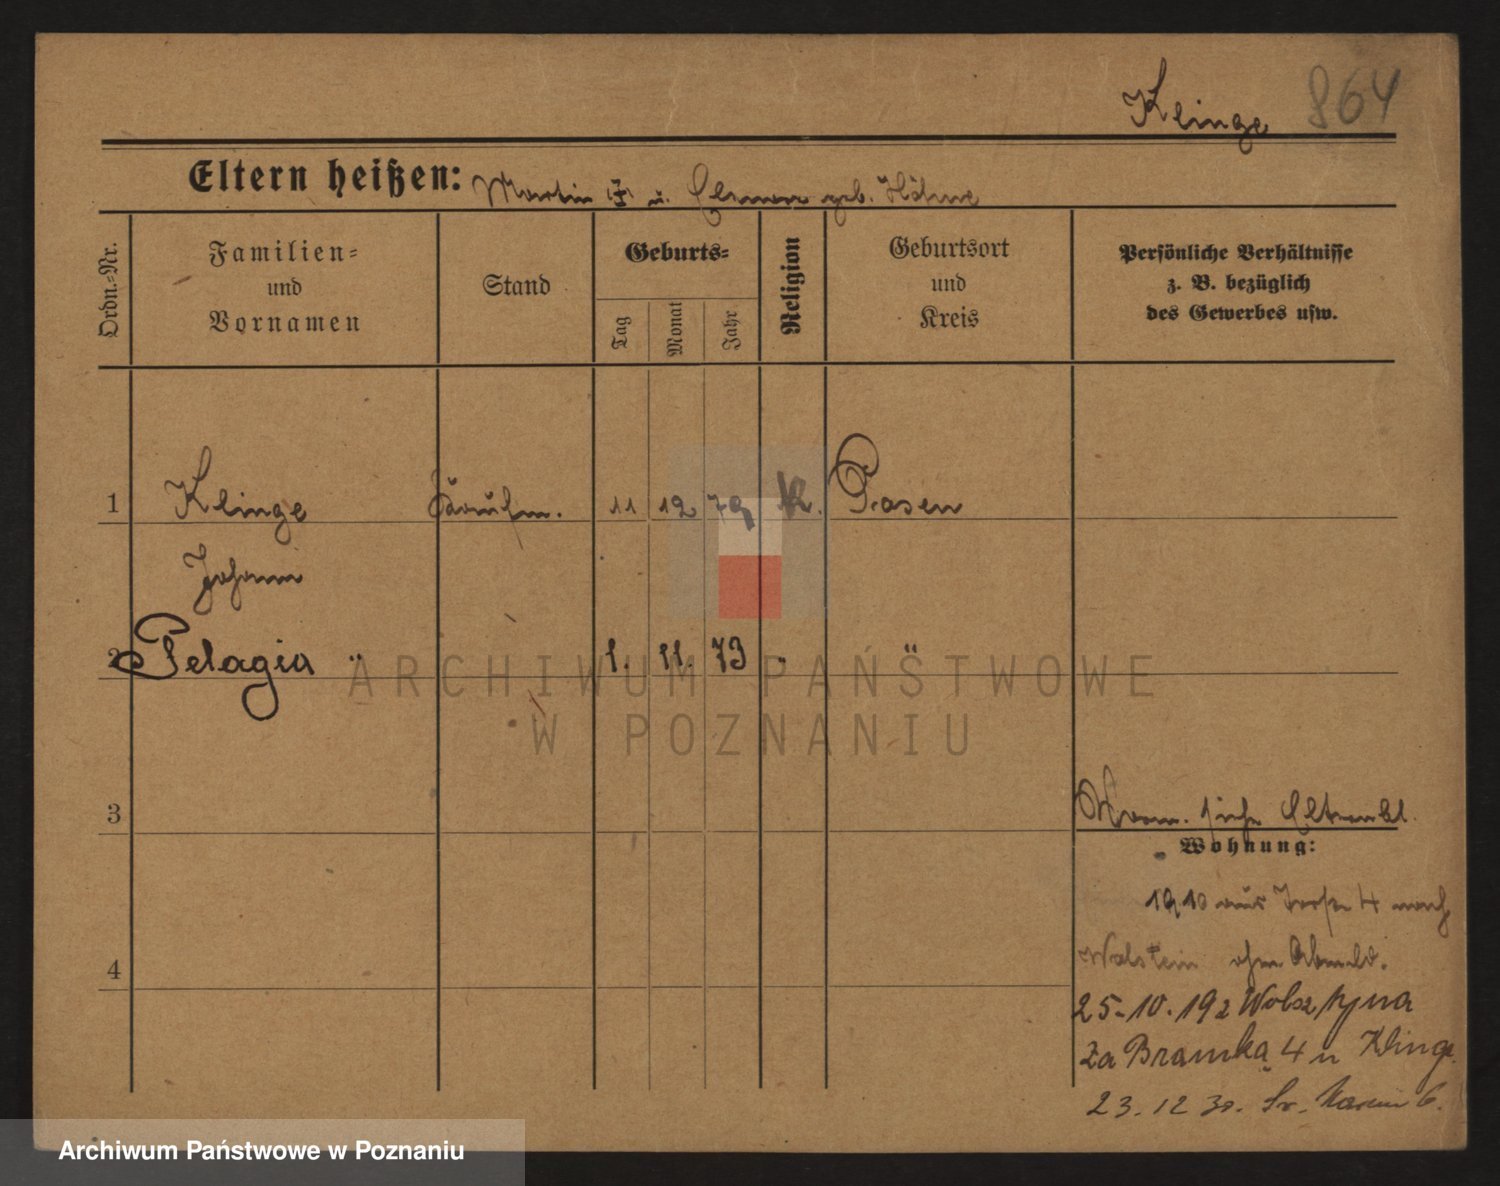 Klinge 864
Eltern heißen: Martin u. geb. Höhne
Ordn.=Nr.
Familien=
und
Vornamen
Stand
Geburts=
Tag
Monat
Jahr
Religion
Geburtsort
und
Kreis
Persönliche Verhältnisse
z. B. bezüglich
des Gewerbes usw.
1 Klinge 11 12 79 k. Posen
Johann
2 Pelagia " 1. 11. 73 "
3
siehe Elternbl.
Wohnung:
1910 aus 4 nach
Wolstein ohne Abmeld.
4
25-10.19 z Wolsztyna
za Bramką 4 u Klinge
23.12 30. Św. Marcin 6.
ARCHIWUM PAŃSTWOWE
W POZNANIU
Archiwum Państwowe w Poznaniu